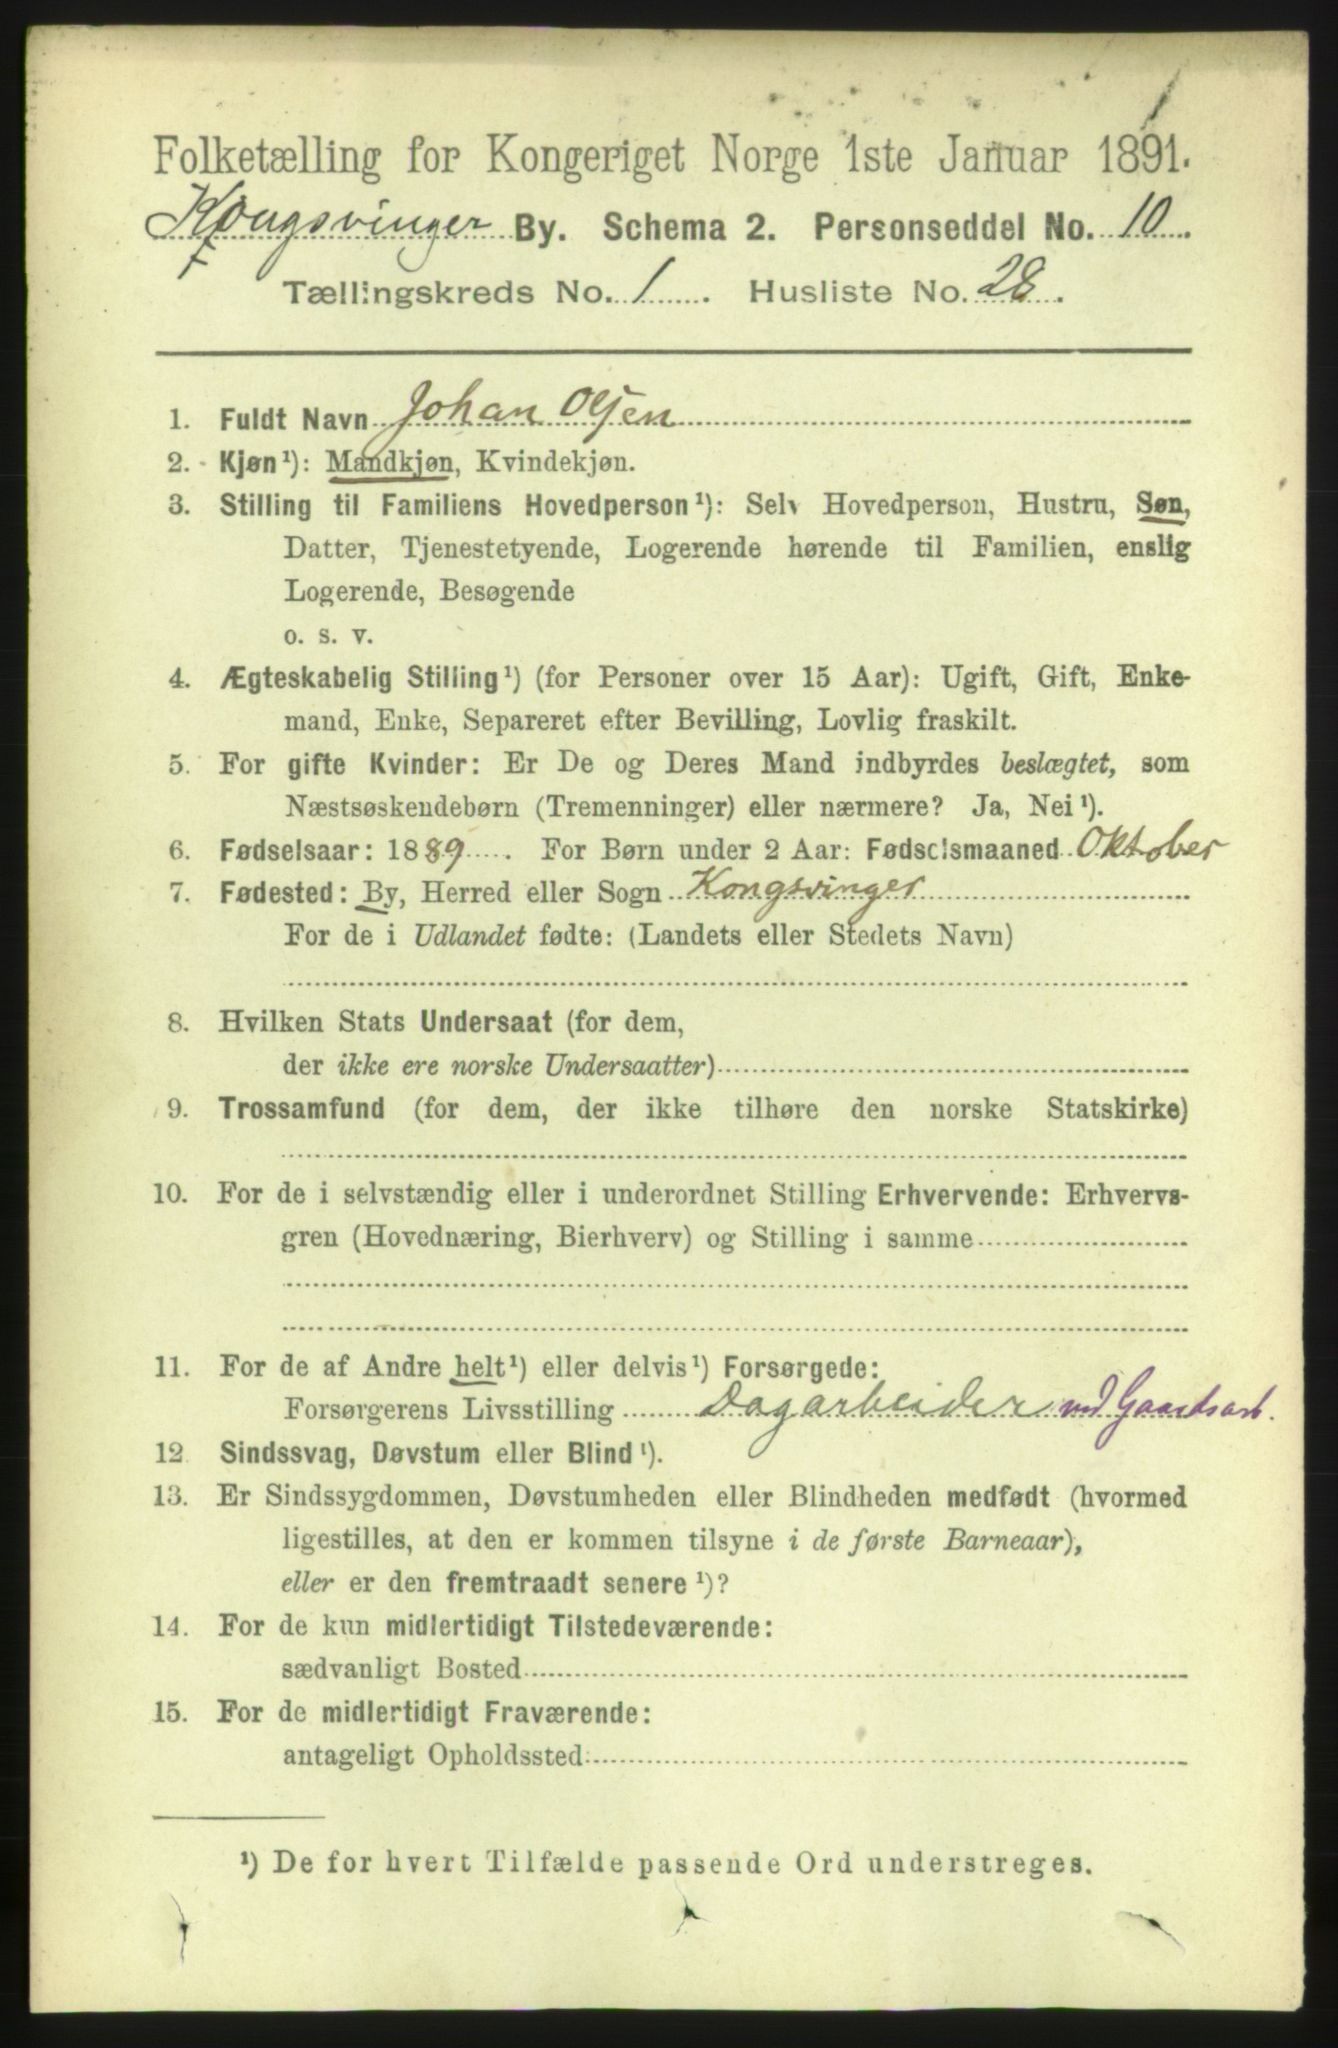 Folketælling for Kongeriget Norge 1ste Januar 1891.
Kongsvinger By. Schema 2. Personseddel No. 10.
Tællingskreds No. 1. Husliste No. 28.
1. Fuldt Navn Johan Olsen
2. Kjøn¹): Mandkjøn, Kvindekjøn.
3. Stilling til Familiens Hovedperson¹): Selv Hovedperson, Hustru, Søn,
Datter, Tjenestetyende, Logerende hørende til Familien, enslig
Logerende, Besøgende
o. s. v.
4. Ægteskabelig Stilling¹) (for Personer over 15 Aar): Ugift, Gift, Enke-
mand, Enke, Separeret efter Bevilling, Lovlig fraskilt.
5. For gifte Kvinder: Er De og Deres Mand indbyrdes beslægtet, som
Næstsøskendebørn (Tremenninger) eller nærmere? Ja, Nei¹).
6. Fødselsaar: 1889. For Børn under 2 Aar: Fødselsmaaned Oktober
7. Fødested: By, Herred eller Sogn Kongsvinger
For de i Udlandet fødte: (Landets eller Stedets Navn)
8. Hvilken Stats Undersaat (for dem,
der ikke ere norske Undersaatter)
9. Trossamfund (for dem, der ikke tilhøre den norske Statskirke)
10. For de i selvstændig eller i underordnet Stilling Erhvervende: Erhvervs-
gren (Hovednæring, Bierhverv) og Stilling i samme
11. For de af Andre helt¹) eller delvis¹) Forsørgede:
Forsørgerens Livsstilling Dagarbeider ved Gaardsarb.
12. Sindssvag, Døvstum eller Blind¹).
13. Er Sindssygdommen, Døvstumheden eller Blindheden medfødt (hvormed
ligestilles, at den er kommen tilsyne i de første Barneaar),
eller er den fremtraadt senere¹)?
14. For de kun midlertidigt Tilstedeværende:
sædvanligt Bosted
15. For de midlertidigt Fraværende:
antageligt Opholdssted:
¹) De for hvert Tilfælde passende Ord understreges.